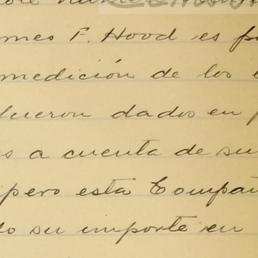 mes F. Hood es p
medición de los
fueron dados en p
s a cuenta de su
pero esta Compañ
do su importe en